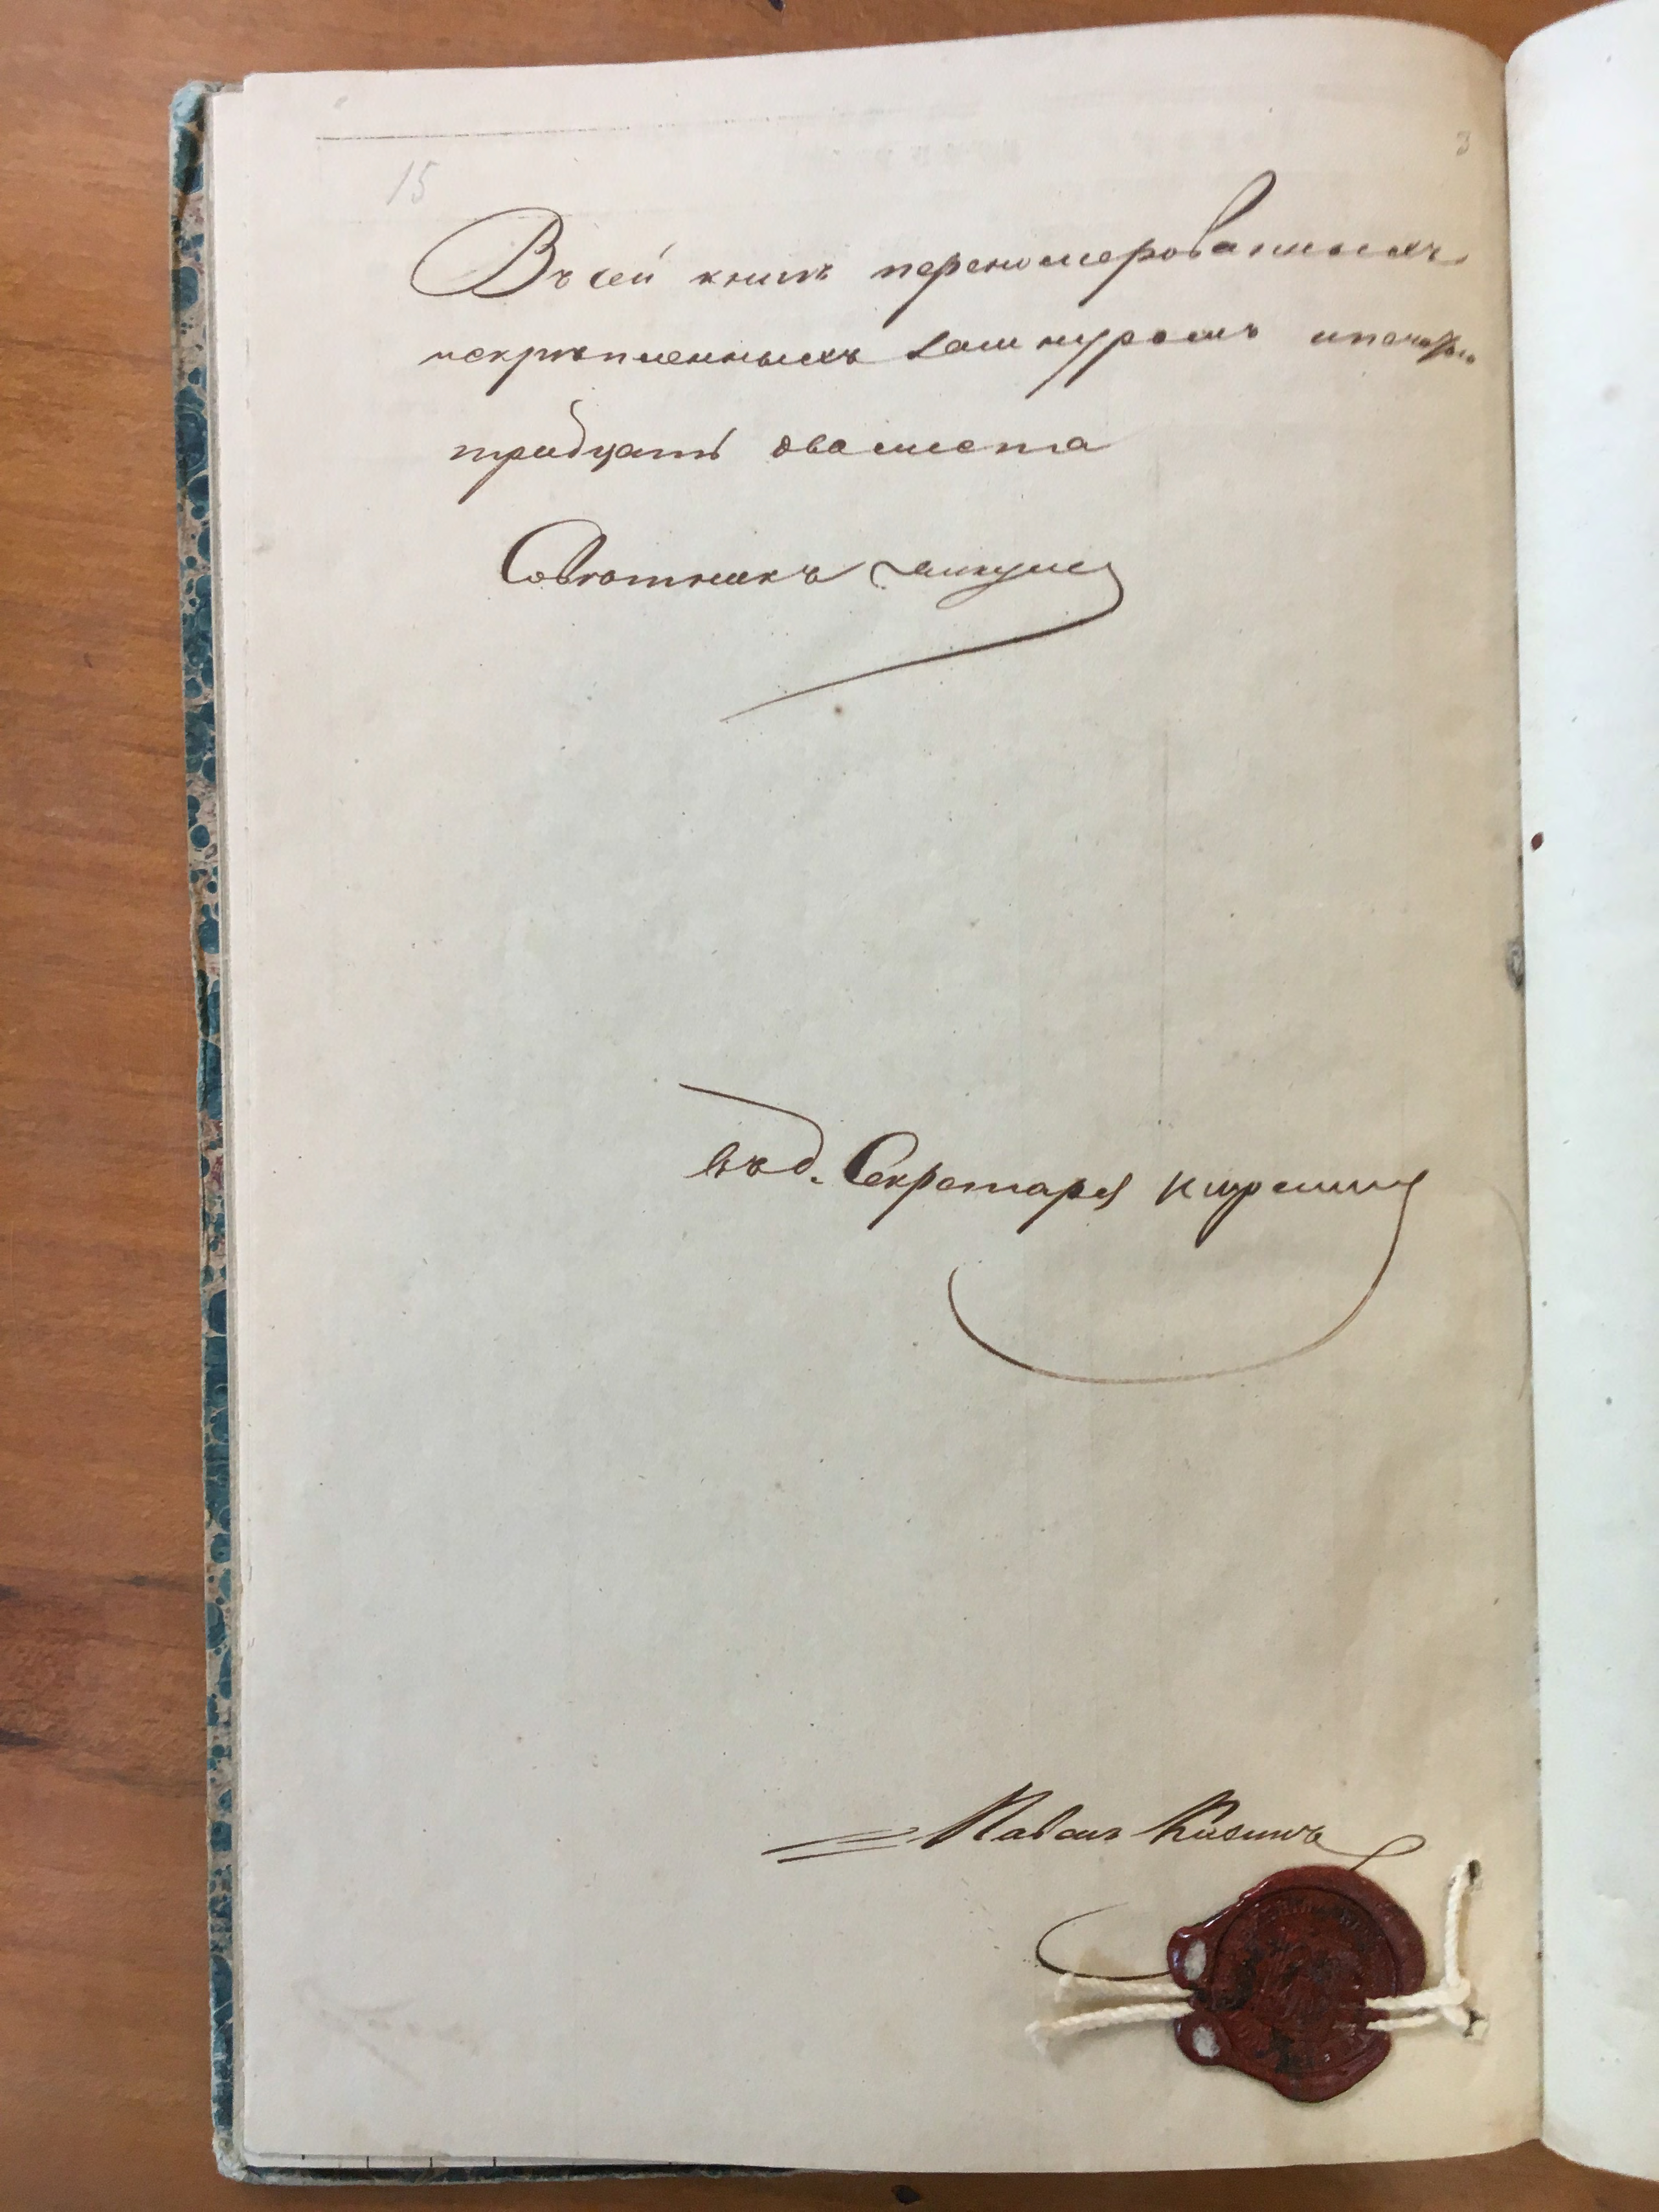 15
Въ сей книгѣ перенумерованныхъ
искрѣпленныхъ зашнуромъ ипечатью
тридцать двалиста
Совѣтникъ
въ д. Секретаря
Павелъ